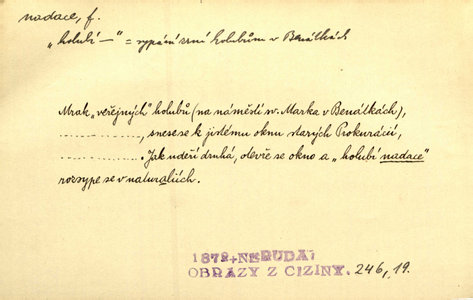 nadace, f.
„holubí —" = sypání zrní holubům v Benátkách
Mrak „veřejných" holubů (na náměstí sv. Marka v Benátkách),
................, snese se k jistému oknu starých Prokurácií,
................. Jak udeří druhá, otevře se okno a „holubí nadace"
rozsype se v naturaliích.
1872, NERUDA,
OBRAZY Z CIZINY. 246, 19.